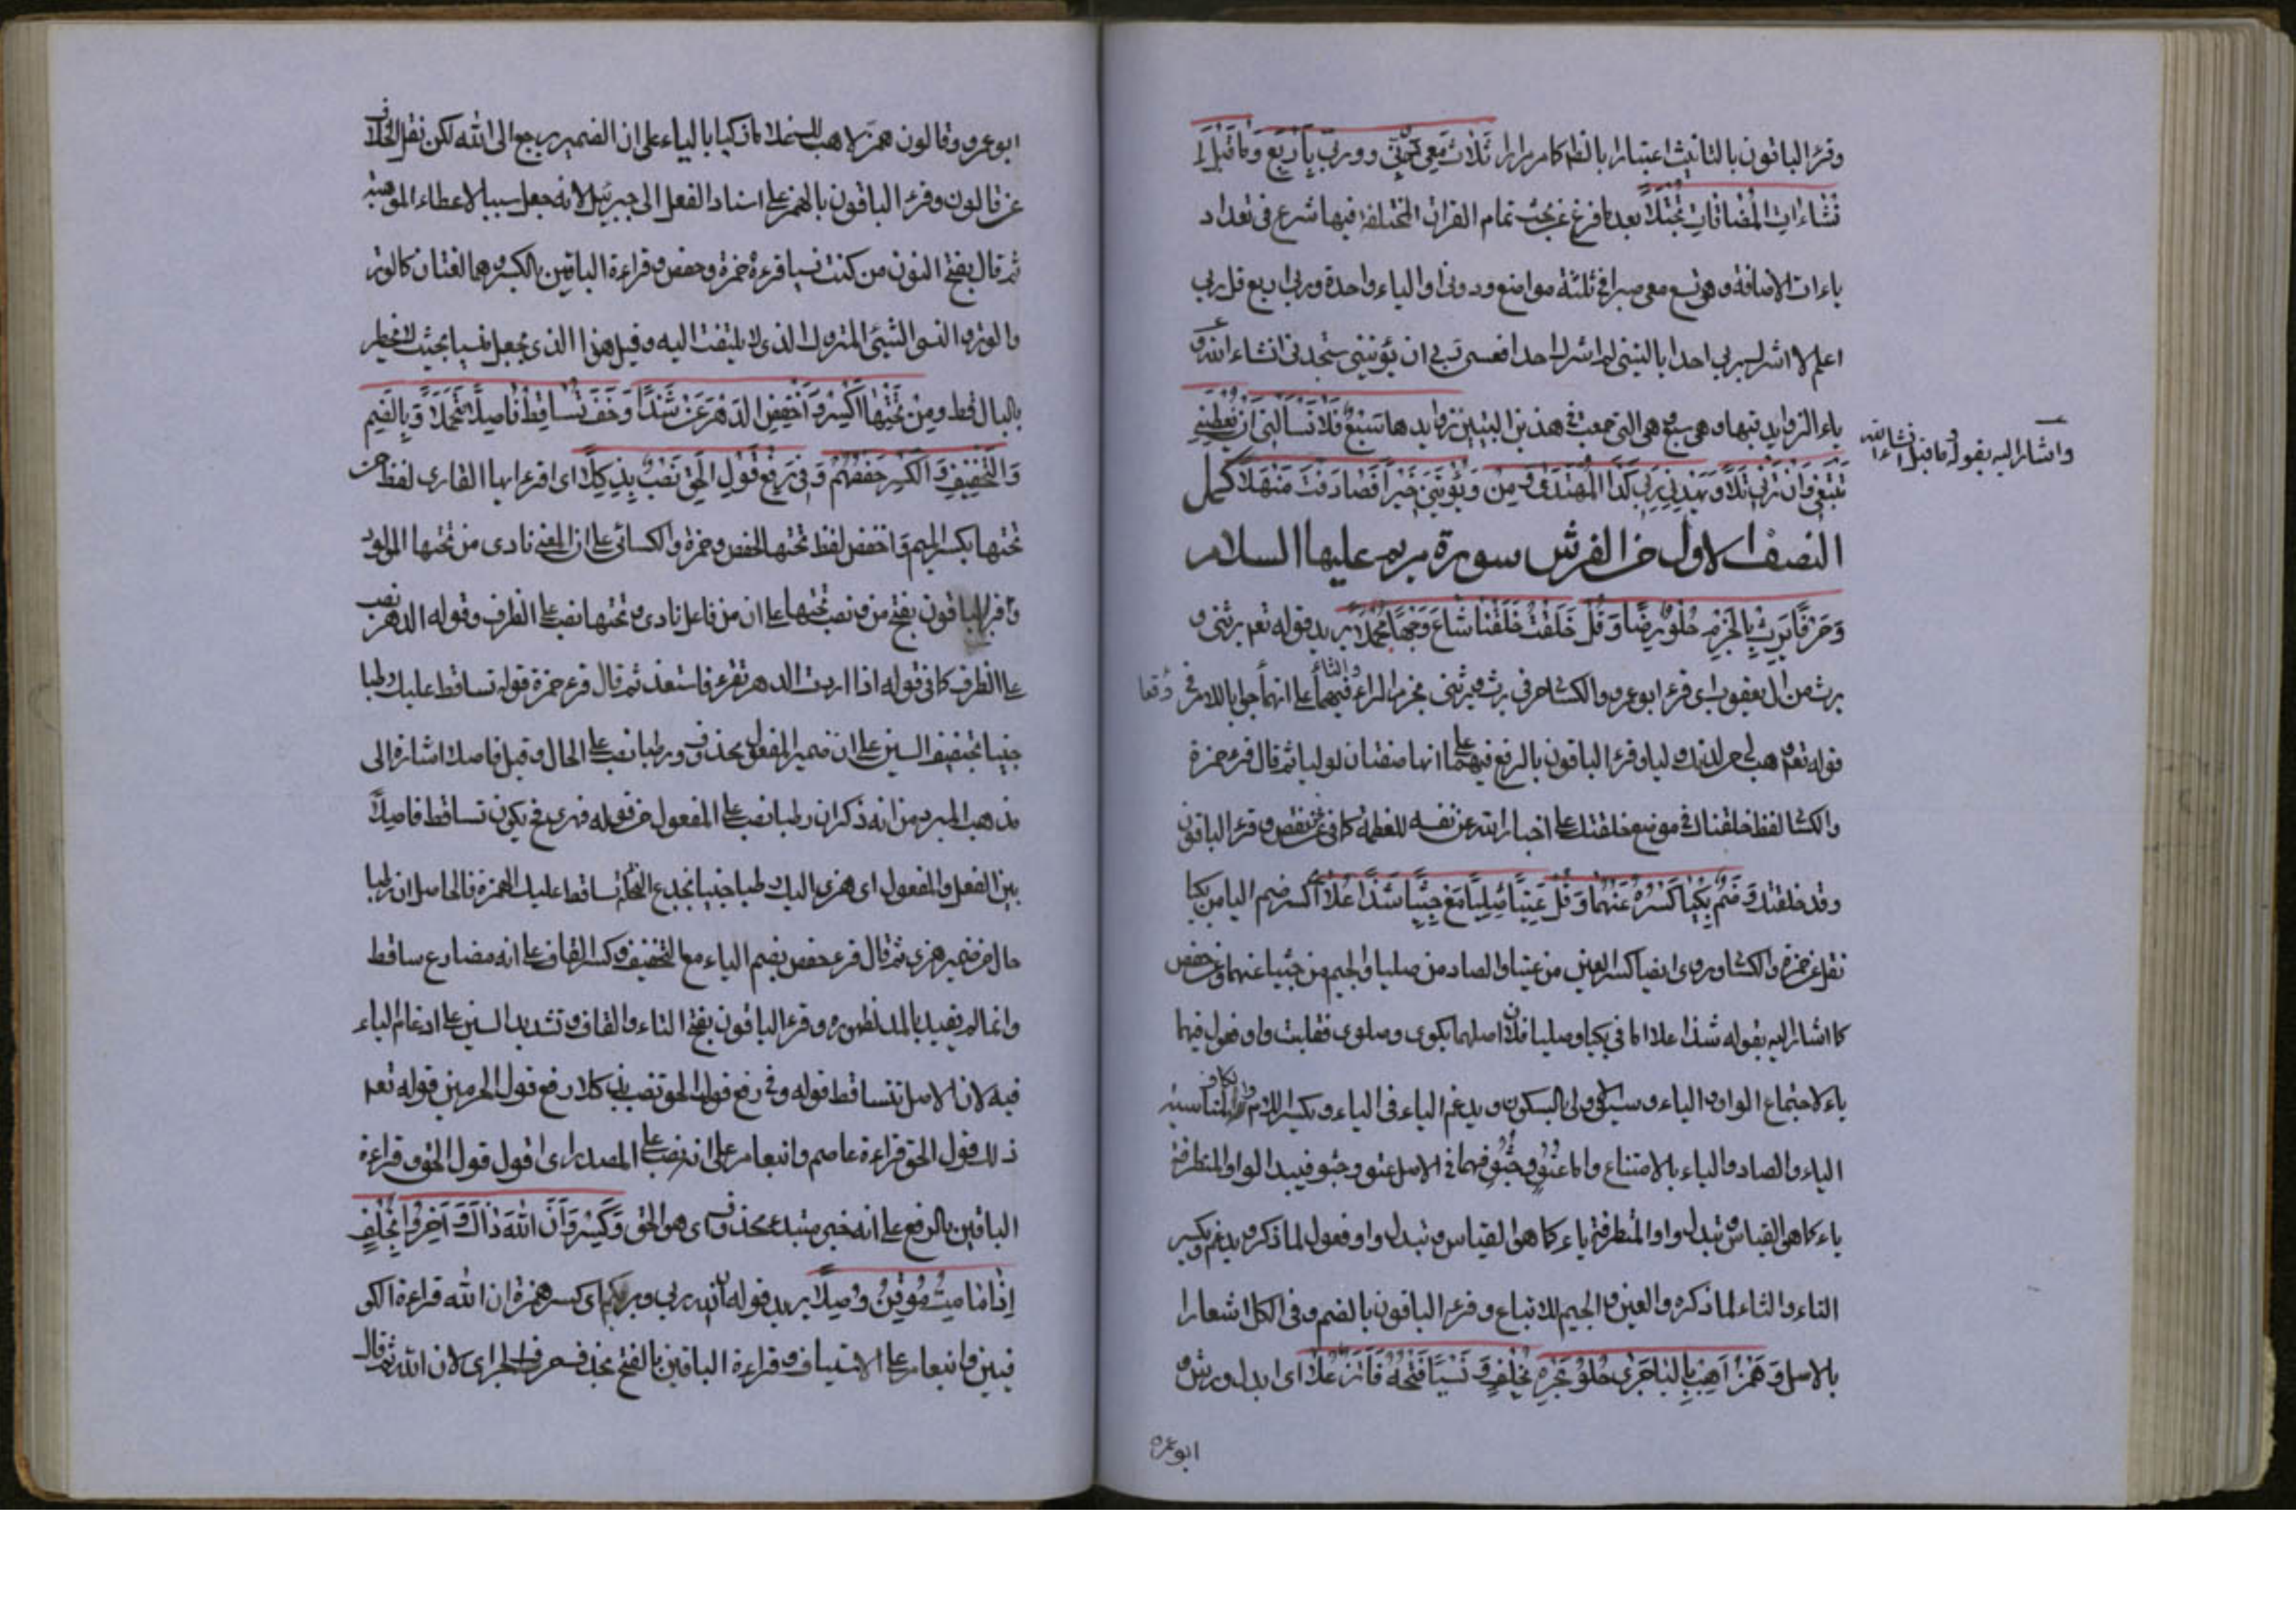 وقرء الباقون بالتانيث اعتبارا بالظاهر ثلاث معي دوني وربي بأربع وما قبل ا
نشاءات المضافات تجتلا بعد ما فرغ عن بحث تمام القرات المختلفة فيها شرع في تعداد
ياءات الاضافة وهي تسع معي صبرا في ثلثة مواضع ودوني اولياء واحدة وربي اربع قل ربي
اعلم لا اشرك بربي احدا ياليتني لم اشرك احدا فعسى ربي ان يؤتيني ستجدني انشاء الله و
ياء الزوايد فيها وهي سبع وهي التي جمعت في هذين البيتين زوايدها سبع فلا تسألني ان تعطني
واشار اليه بقوله وما قبل انشاء الله
نبغي وان ترني تلا ويهدني ربي كذا المهتدي ومن ويؤتيني خيرا فصادفت منهلا كمل
النصف الاول من الفرش سورة مريم عليها السلام
وحرفا يرث بالجزم حلو رضا وقل خلقت خلقنا شاع وجها مجملا يريد قوله تعم يرثني و
يرث من ال يعقوب اى قرء ابو عمرو والكسا حرفي يرث ويرثني بجزم الراء والثاء فيهما على انهما جوابا للامر وقعا في
قوله تعم هب لي من لدنك وليا وقرء الباقون بالرفع فيهما على انها صفتان لوليا ثم قال قرء حمزة
والكسا لفظ خلقناك في موضع خلقتك على اخبار الله عن نفسه للعظمة كما في نحن نقص وقرء الباقون
وقد خلقتك وضم بكيا كسره عنهما وقل عتيا صليا مع جثيا شذا علا اكسر ضم اليا من بكيا
نقل عن حمزة والكسا وروى ايضا كسر العين من عتيا والصاد من صليا والجيم من جثيا عنهما وعن حفص
كما اشار اليه بقوله شذا علا اما في بكيا وصليا فلان اصلهما بكوى وصلوى فقلبت واو فعول فيهما
ياء لاجتماع الواو والياء وسبق الاولى بالسكون ويدغم الياء في الياء ويكسر اللام والكاف لمناسبة
الياء والصاد والباء بالامتناع واما عتو وجثو فهما في الاصل عتوو وجثوو فيبدل الواو المتطرفة
ياء كما هو القياس تبدل واو المتطرفة ياء كما هو القياس وتبدل واو فعول لما ذكر ويدغم ويكسر
التاء والثاء لما ذكره والعين والجيم للاتباع وقرء الباقون بالضم وفي الكل اشعارا
بالاصل وهمز اهب باليا جرى حلو بحره بخلف ونسيا فتحه فائز علا اى ابدل ورش و
ابو عمرو
ابو عمرو وقالون همز لاهب لك غلاما زكيا بالياء على ان الضمير يرجع الى الله لكن نقل الخلاف
عن قالون وقرء الباقون بالهمز على اسناد الفعل الى جبرئيل لانه جعل سببا لاعطاء الموهبة
ثم قال بفتح النون من كنت نسيا قرءة حمزة وحفص وقراءة الباقين بالكسر وهما لغتان كالوتر
والوتر والنسي الشيئ المتروك الذى لا يلتفت اليه وقيل هذا الذى يجعل نسيا بحيث لا يخطر
بالبال قط ومن تحتها اكسر واخفض الدهر عن شذا وخف تساقط فاصلا فتحملا وبالضم
والتخفيف والكسر حفصهم وفي رفع قول الحق نصب ند كلا اى اقرء ايها القارى لفظ من
تحتها بكسر الميم واخفض لفظ تحتها لحفص وحمزة والكسائي على ان المعنى نادى من تحتها المولود
واقرا الباقون بفتح من ونصب تحتها على ان من فاعل نادى وتحتها نصب على الظرف وقوله الدهر نصب
على الظرف كما في قوله اذا اردت الدهر تقرء فاستعذ ثم قال قرء حمزة قوله تساقط عليك رطبا
جنيا بتخفيف السين على ان ضمير المفعول محذوف ورطبا نصب على الحال وقيل فاصلا اشارة الى
مذهب المبرد من انه ذكر ان رطبا نصب على المفعول من قوله هزى فح يكون تساقط فاصلا
بين الفعل والمفعول اى هزى اليك رطبا جنيا بجذع النخلة تساقط عليك الهمزة فالحاصل ان رطبا
حال من ضمير هزى ثم قال قرء حفص بضم التاء مع التخفيف وكسر القاف على انه مضارع ساقط
وانما لم يقيد بالمد لظهوره وقرء الباقون بفتح التاء والقاف وتشديد السين على ادغام التاء
فيه لان الاصل تتساقط قوله وفي رفع قول الحق نصب ند كلا رفع قول الحرمين قوله تعم
ذلك قول الحق قراءة عاصم وابن عامر على انه نصب على المصدر اى اقول قول الحق وقراءة
الباقين بالرفع على انه خبر مبتدء محذوف اى هو الحق وكسر وان الله ذاك واخبروا بخلف
اذا ما مت موفين وصلا يريد قوله ان الله ربي وربكم اى كسر همزة ان الله قراءة الكو
فيين وابن عامر على الاستيناف وقراءة الباقين بالفتح بحذف حرف الجر اى لان الله ثم قال